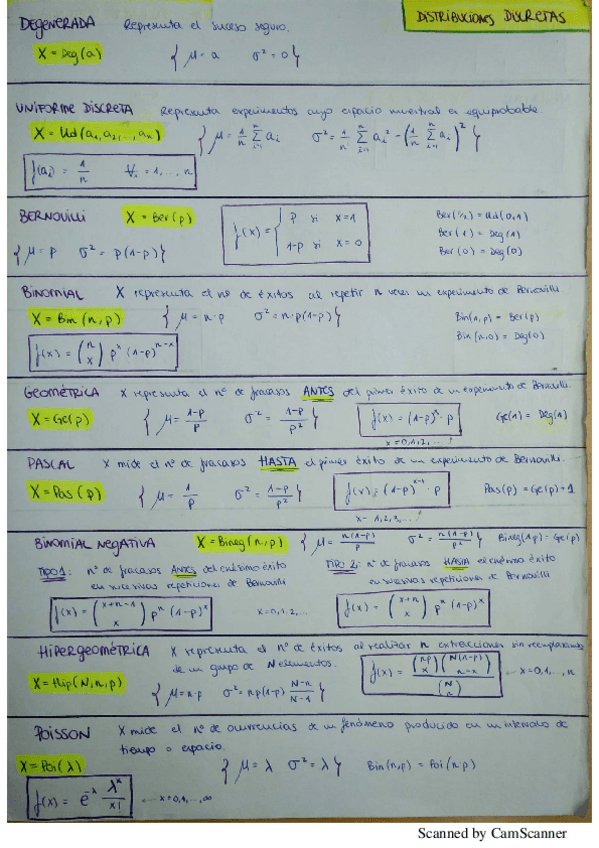 DISTRIBUCIONES DISCRETAS
DEGENERADA Representa el suceso seguro.
X = Deg(a) { μ = a σ² = 0 }
UNIFORME DISCRETA Representa experimentos cuyo espacio muestral es equiprobable.
X = Ud(a₁, a₂, ..., aₙ) { μ = 1/n Σⁿᵢ₌₁ aᵢ σ² = 1/n Σⁿᵢ₌₁ aᵢ² - (1/n Σⁿᵢ₌₁ aᵢ)² }
f(aᵢ) = 1/n ∀ᵢ = 1, ..., n
BERNOUILLI X = Ber(p) f(x) = { p si x=1
1-p si x=0
{ μ = p σ² = p(1-p) }
Ber(1/2) = Ud(0,1)
Ber(1) = Deg(1)
Ber(0) = Deg(0)
BINOMIAL X representa el nº de éxitos al repetir n veces un experimento de Bernouilli.
X = Bin(n, p) { μ = n·p σ² = n·p(1-p) } Bin(1, p) = Ber(p)
Bin(n, 0) = Deg(0)
f(x) = (n x) pˣ (1-p)ⁿ⁻ˣ
GEOMÉTRICA X representa el nº de fracasos ANTES del primer éxito de un experimento de Bernouilli.
X = Ge(p) { μ = 1-p/p σ² = 1-p/p² } f(x) = (1-p)ˣ · p Ge(1) = Deg(1)
x = 0,1,2, ...
PASCAL X mide el nº de fracasos HASTA el primer éxito de un experimento de Bernouilli.
X = Pas(p) { μ = 1/p σ² = 1-p/p² } f(x) = (1-p)ˣ⁻¹ · p Pas(p) = Ge(p)+1
x = 1,2,3, ...
BINOMIAL NEGATIVA X = Bineg(n, p) { μ = n(1-p)/p σ² = n(1-p)/p² } Bineg(1,p) = Ge(p)
TIPO 1: nº de fracasos ANTES del enésimo éxito
en sucesivas repeticiones de Bernouilli
f(x) = (x+n-1 x) pⁿ (1-p)ˣ x = 0,1,2, ...
TIPO 2: nº de fracasos HASTA el enésimo éxito
en sucesivas repeticiones de Bernouilli
f(x) = (x+n x) pⁿ (1-p)ˣ
HIPERGEOMÉTRICA X representa el nº de éxitos al realizar n extracciones sin reemplazamiento
de un grupo de N elementos.
X = Hip(N, n, p) { μ = n·p σ² = np(1-p) N-n/N-1 }
f(x) = (Np x)(N(1-p) n-x)/(N n) x = 0,1, .., n
POISSON X mide el nº de ocurrencias de un fenómeno producido en un intervalo de
tiempo o espacio.
X = Poi(λ) { μ = λ σ² = λ } Bin(n, p) = Poi(n·p)
f(x) = e^-λ λˣ/x! x = 0,1, ..., ∞
Scanned by CamScanner